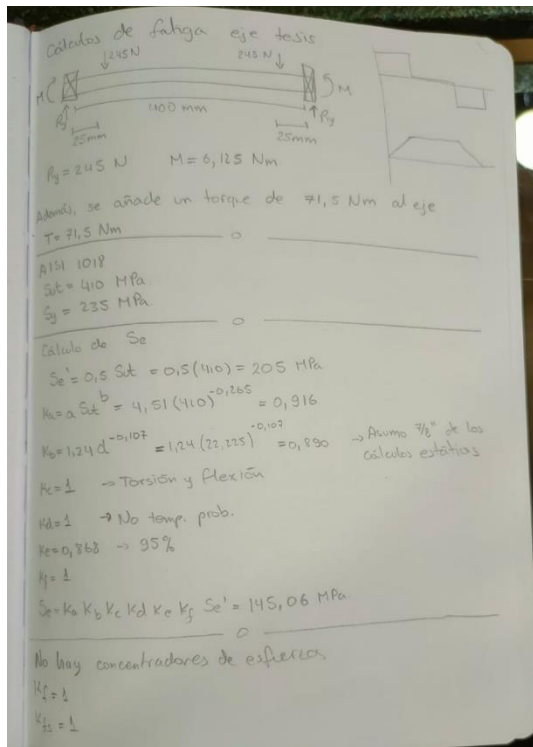 Cálculos de fatiga eje tesis
↓245N 245N↓
M M
Ry 400 mm Ry
25mm 25mm
Ry = 245 N M = 6,125 Nm
Además, se añade un torque de 71,5 Nm al eje
T = 71,5 Nm
AISI 1018
Sut = 410 MPa
Sy = 235 MPa
Cálculo de Se
Se' = 0,5 Sut = 0,5(410) = 205 MPa
Ka = a Sut^b = 4,51(410)^-0,265 = 0,916
Kb = 1,24 d^-0,107 = 1,24 (22,225)^-0,107 = 0,890 → Asumo 7/8" de los
cálculos estáticos
Kc = 1 → Torsión y flexión
Kd = 1 → No temp. prob.
Ke = 0,868 → 95%
Kf = 1
Se = Ka Kb Kc Kd Ke Kf Se' = 145,06 MPa
No hay concentradores de esfuerzo
Kf = 1
Kfs = 1